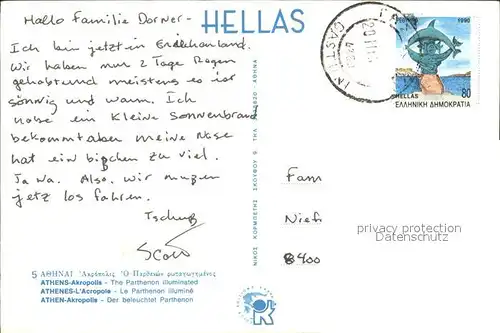 Hallo Familie Dorner-
HELLAS
Ich bin jetzt in
Wir haben nur 2 Tage Regen
gehabt und meistens es ist
sonnig und warm. Ich
habe ein kleine Sonnenbrand
bekommt aber meine Nase
hat ein bißchen zu viel.
Ja na. Also, wir mußen
jetz los fahren.
Tschuß
Scott
Fam
8400
privacy protection
Datenschutz
1990
80
HELLAS
ΕΛΛΗΝΙΚΗ ΔΗΜΟΚΡΑΤΙΑ
ΝΙΚΟΣ ΚΟΡΜΠΕΤΗΣ ΣΚΟΥΦΟΥ 9 ΤΗΛ ΑΘΗΝΑ
5 ΑΘΗΝΑΙ Ἀκρόπολις Ὁ Παρθενών φωταγωγημένος
ATHENS-Akropolis - The Parthenon illuminated
ATHENES-L'Acropole - Le Parthenon illuminé
ATHEN-Akropolis - Der beleuchtet Parthenon